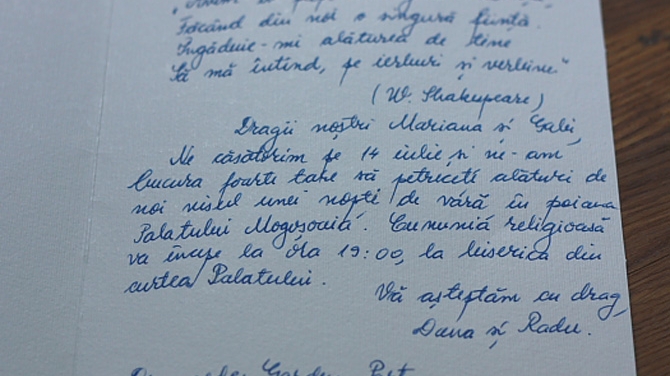 Făcând din noi o singură ființă.
Îngăduie-mi alăturea de tine
Să mă întind, pe ierburi și verbine."
(W. Shakespeare)
Dragii noștri Mariana și Gabi,
Ne căsătorim pe 14 iulie și ne-am
bucura foarte tare să petreceți alături de
noi visul unei nopți de vară în poiana
Palatului Mogoșoaia. Cununia religioasă
va începe la ora 19:00, la biserica din
curtea Palatului.
Vă așteptăm cu drag,
Dana și Radu.